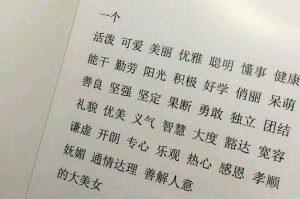 一个
活泼 可爱 美丽 优雅 聪明 懂事 健康
能干 勤劳 阳光 积极 好学 俏丽 呆萌
善良 坚强 坚定 果断 勇敢 独立 团结
礼貌 优美 义气 智慧 大度 豁达 宽容
谦虚 开朗 专心 乐观 热心 感恩 孝顺
妩媚 通情达理 善解人意
的大美女